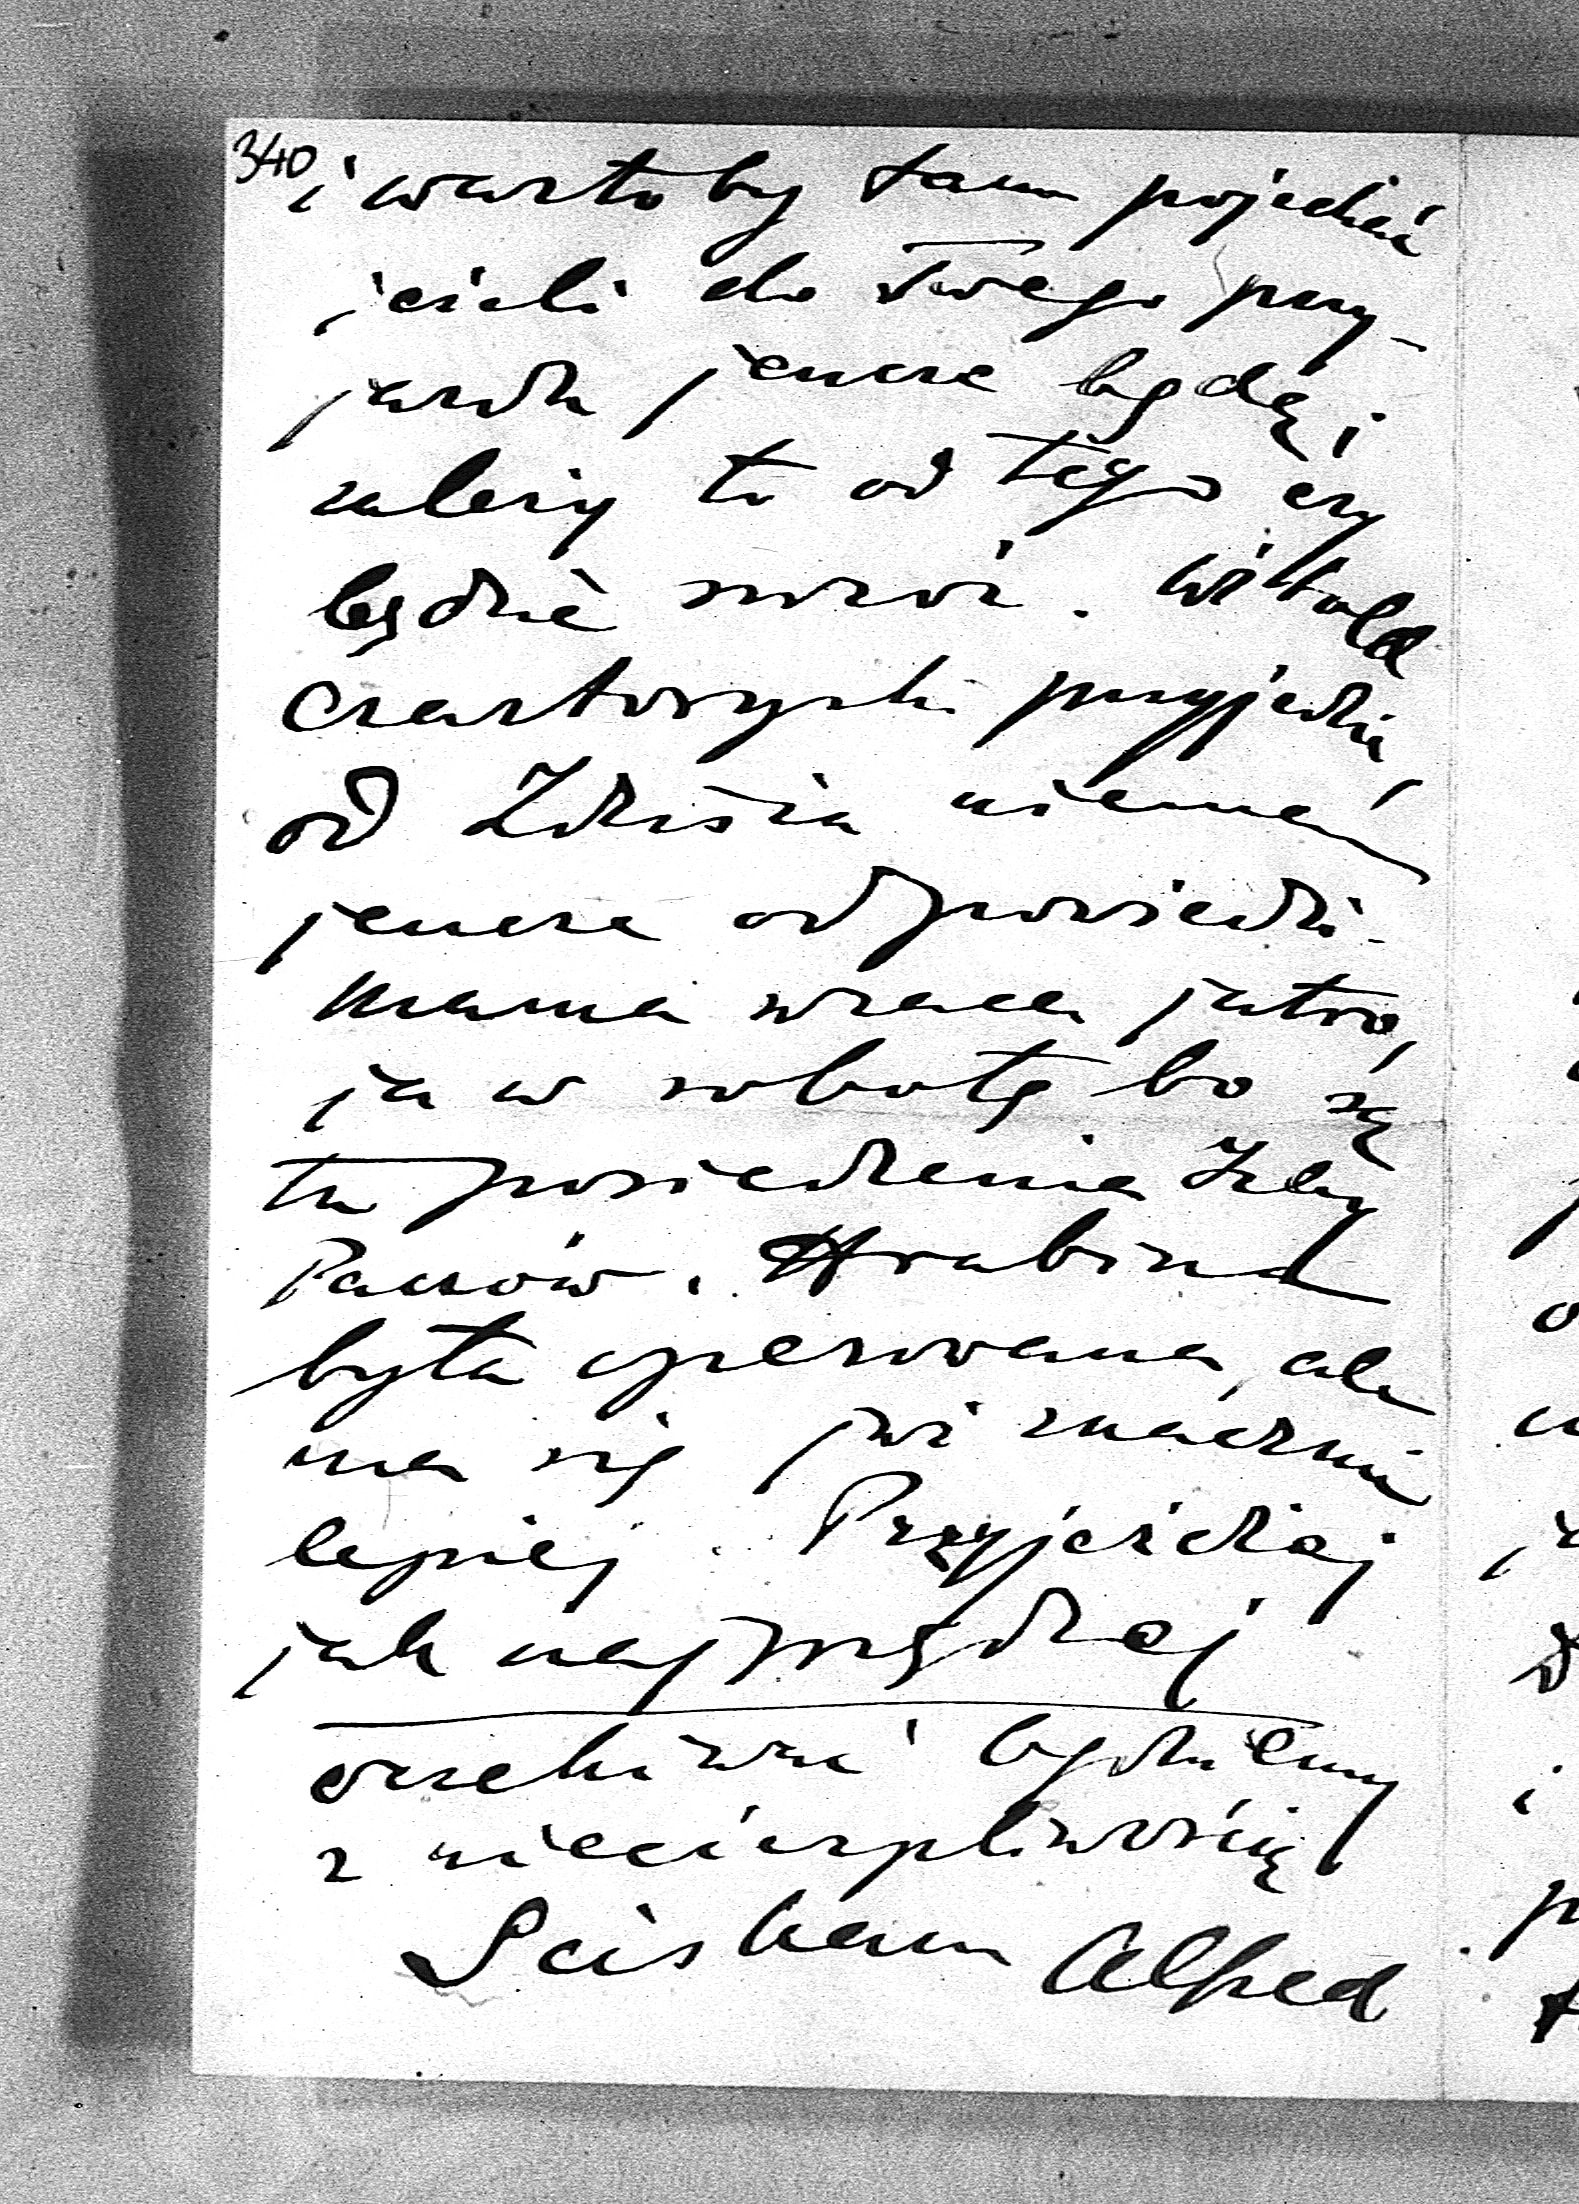 340
i wartoby tam pojechać
jeżeli do Twego przy-
jazdu jeszcze będą;
zależy to od tego czy
będzie mróz. Witold
Czartoryski przyjedzie,
od Zdzisia niema
jeszcze odpowiedzi.
Mama wraca jutro,
ja w sobotę bo są
tu posiedzenia Izby
Panów. Hrabina
była operowana, ale
ma się już znacznie
lepiej. Przyjeżdżaj
jak najprędzej
oczekiwać będziemy
z niecierpliwością
Ściskam Alfred